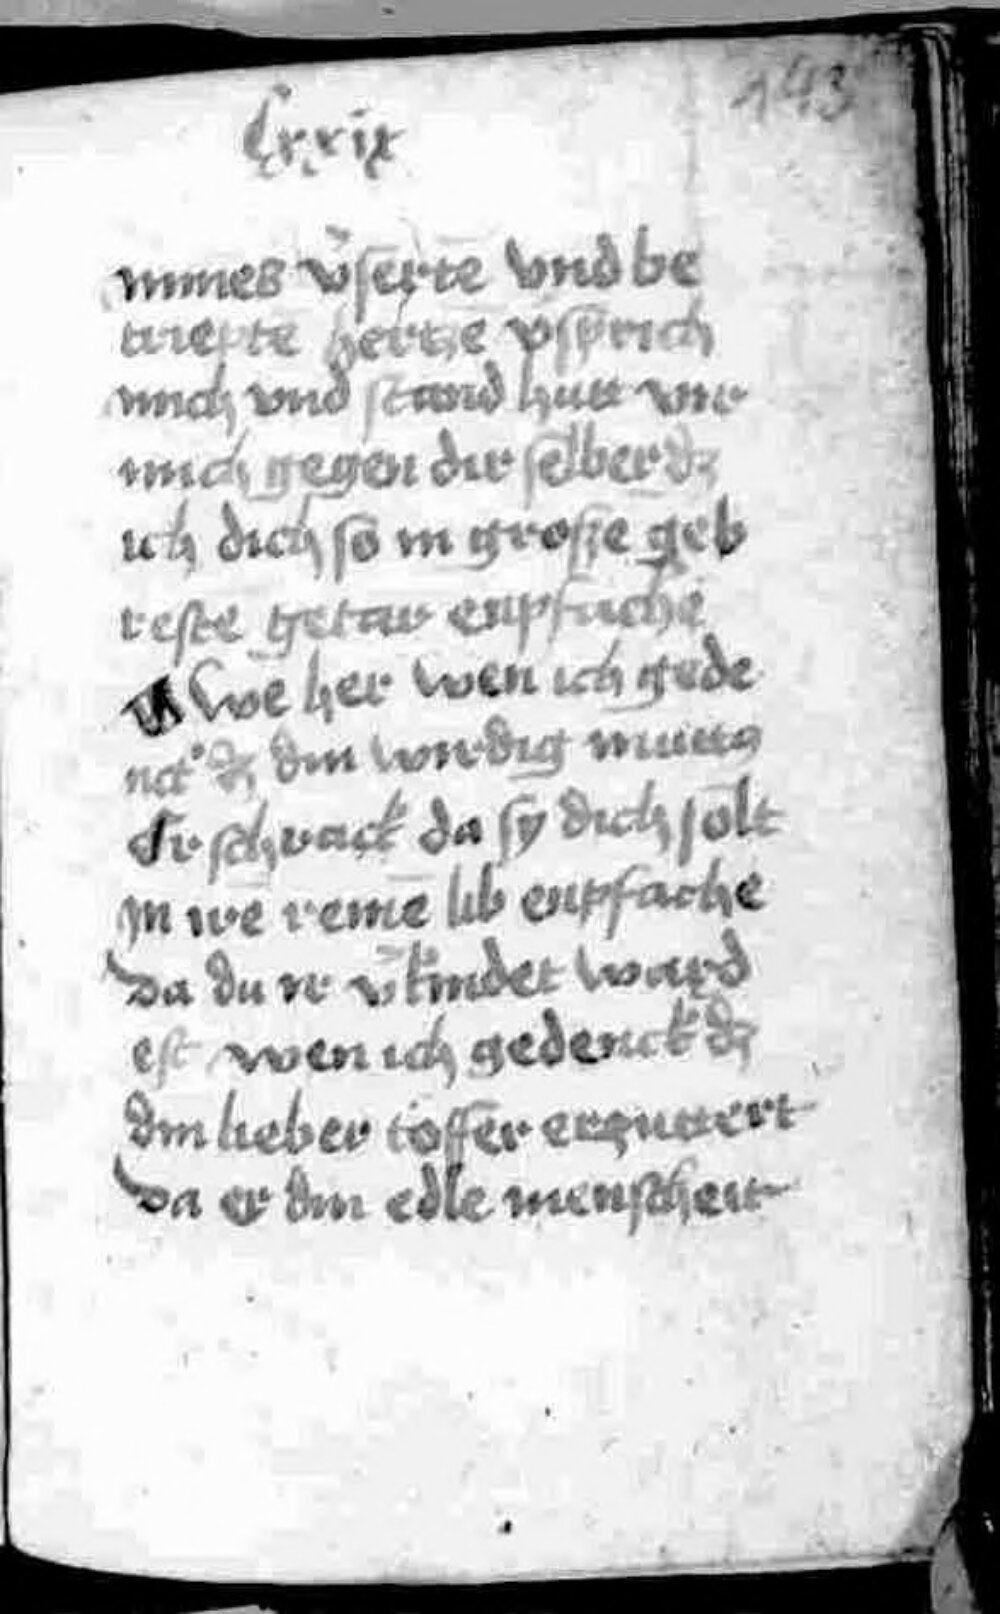 Lxxix
143
mines v̈serte vnd be
triepte hertze vsprich
mich vnd stand hútt vor
mich gegen dir selber dz
ich dich so in grosse geb
reste getar enpfache
we her wen ich gede
nck dz din wirdig mutter
Er schrack da sy dich solt
In ire reinē lib enpfache
Da du ir v̈kindet ward
est wen ich gedenck dz
din lieber töffer erzittert
Da er din edle menscheit